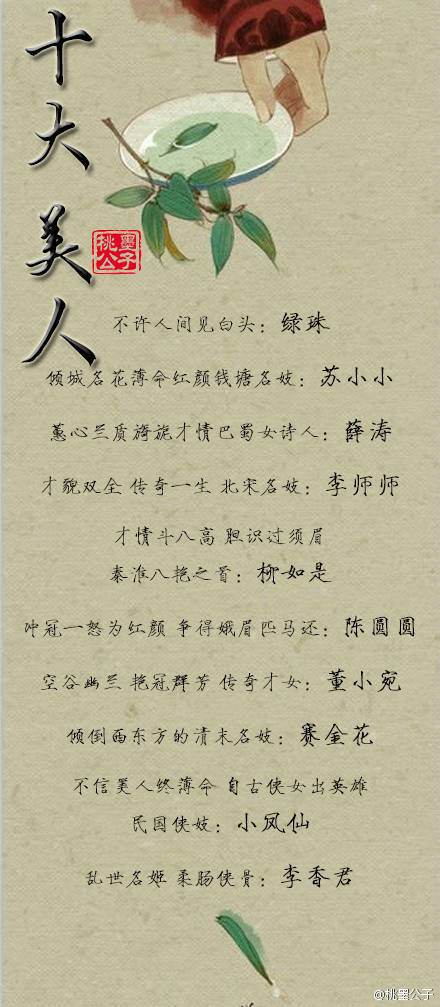 十大美人
桃墨公子
不许人间见白头：绿珠
倾城名花薄命红颜钱塘名妓：苏小小
蕙心兰质旖旎才情巴蜀女诗人：薛涛
才貌双全 传奇一生 北宋名妓：李师师
才情斗八高 胆识过须眉
秦淮八艳之首：柳如是
冲冠一怒为红颜 争得娥眉匹马还：陈圆圆
空谷幽兰 艳冠群芳 传奇才女：董小宛
倾倒西东方的清末名妓：赛金花
不信美人终薄命 自古侠女出英雄
民国侠妓：小凤仙
乱世名姬 柔肠侠骨：李香君
@桃墨公子